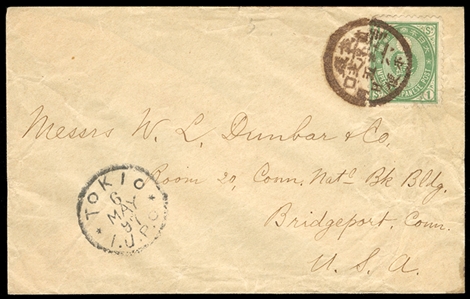 Messrs W. L. Dunbar & Co.
Room 20, Conn. Natl Bk Bldg.
Bridgeport, Conn.
U. S. A.
TOKIO
6
MAY
I.J.P.O
1